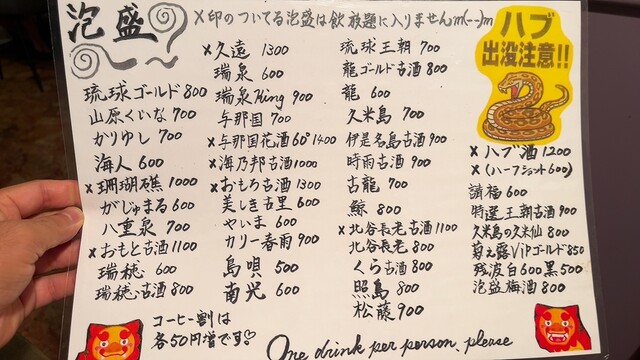 泡盛
×印のついてる泡盛は飲放題に入りませんm(--)m
琉球ゴールド 800
山原くいな 700
かりゆし 700
海人 600
×珊瑚礁 1000
がじゅまる 600
八重泉 700
×おもと古酒 1100
瑞穂 600
瑞穂古酒 800
×久遠 1300
瑞泉 600
瑞泉King 900
与那国 700
×与那国花酒60° 1400
×海乃邦古酒 1000
×おもろ古酒 1300
美しき古里 600
やいま 600
カリー春雨 900
島唄 500
南光 600
琉球王朝 700
龍ゴールド古酒 800
龍 600
久米島 700
伊是名島古酒 900
時雨古酒 900
古龍 700
鯨 800
×北谷長老古酒 1100
北谷長老 800
くら古酒 800
照島 800
松藤 900
ハブ
出没注意!!
×ハブ酒 1200
×(ハーフショット 600)
請福 600
特選王朝古酒 900
久米島の久米仙 800
菊之露VIPゴールド 850
残波 白600 黒500
泡盛梅酒 800
コーヒー割は
各50円増です♡
One drink per person please